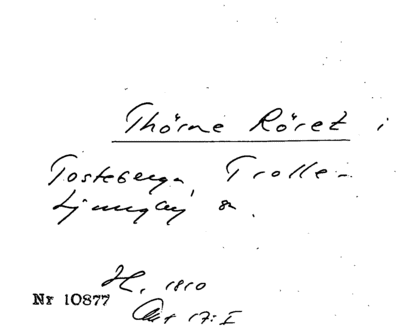 Thörne Röret i
Tosteberga, Trolle-
Ljungby sn.
H. 1810
Nr 10877
Akt 17:I